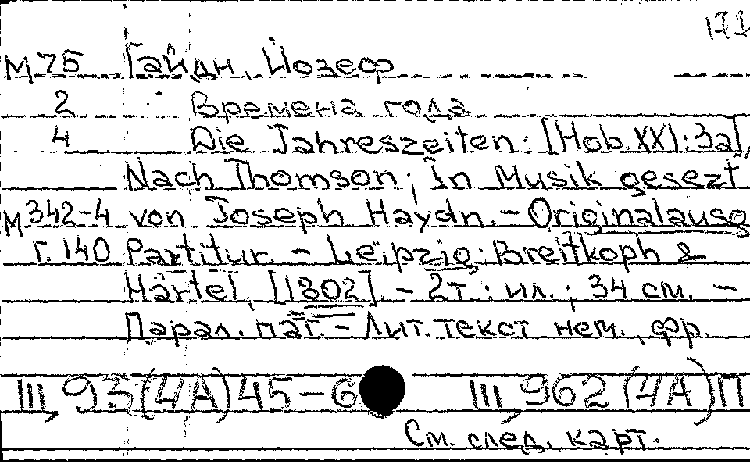 М7Б Гайдн, Йозеф
2 Времена года
4 Die Jahreszeiten: [Hob.XXI:3a],
Nach Thomson; In Musik gesezt
М342-4 von Joseph Haydn. - Originalausg
г.140 Partitur. - Leipzig: Breitkoph &
Härtel, [1802]. - 2т.: ил.; 34 см. -
Парал. паг. - Лит. текст нем., фр.
III, 93(4А)45-6 III, 962(4А)П
См. след. карт.